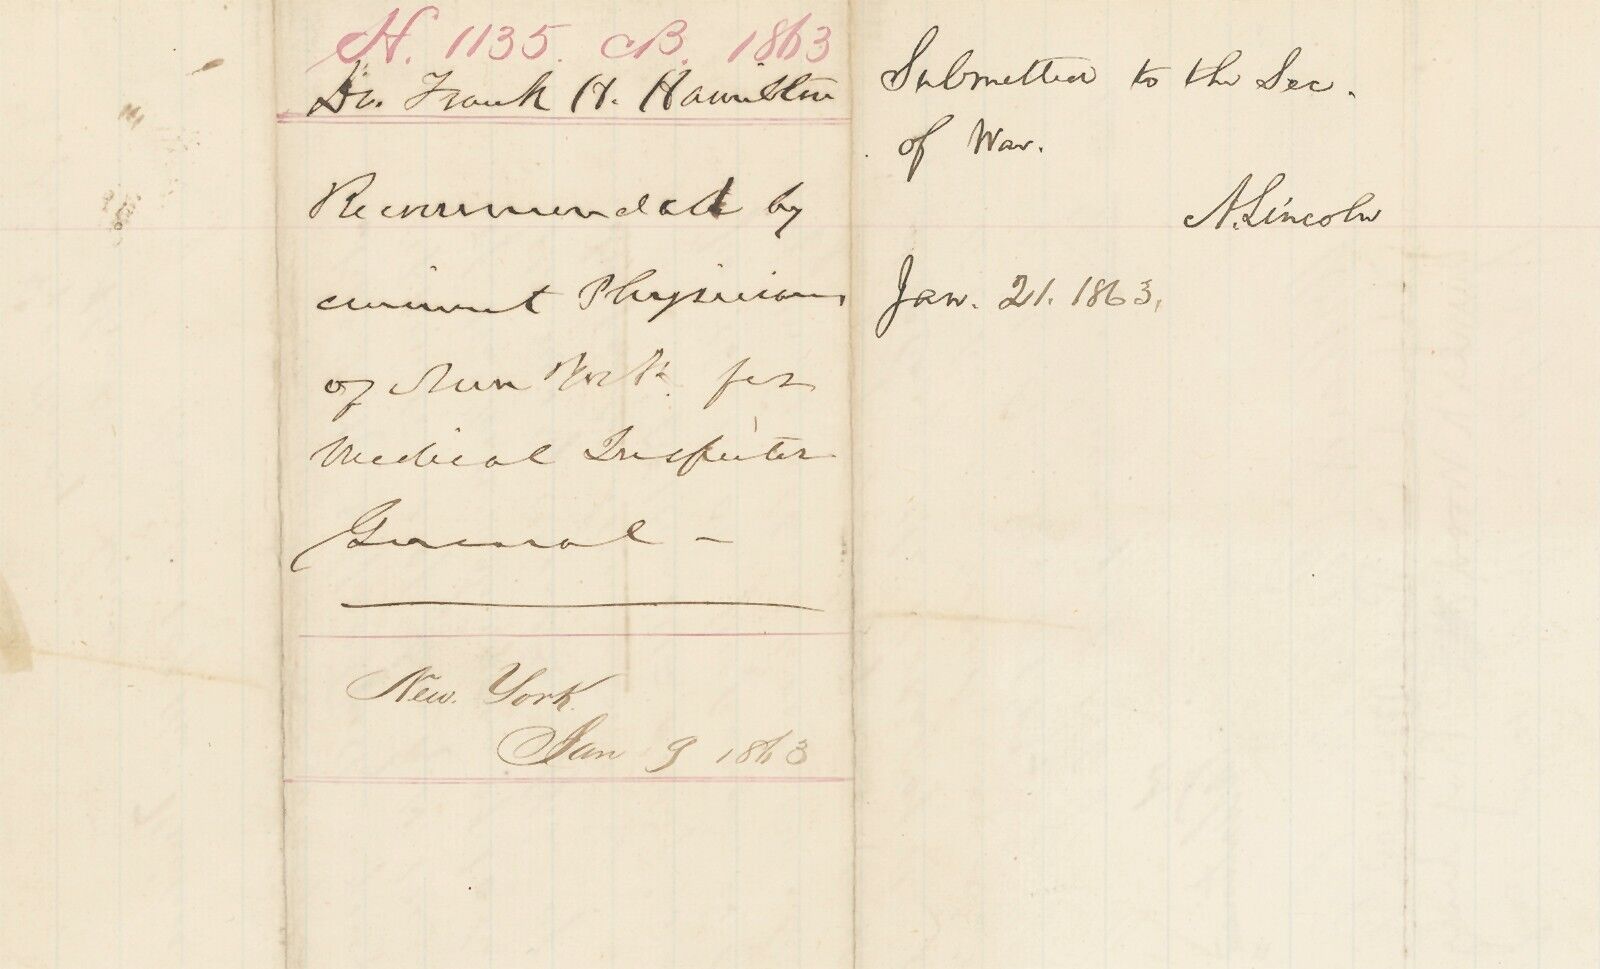 H. 1135. B. 1863
Dr. Frank H. Hamilton
Recommended by
eminent Physicians
of New York for
Medical Inspector
General –
New York
Jan 9 1863
Submitted to the Sec.
of War.
A. Lincoln
Jan. 21. 1863.